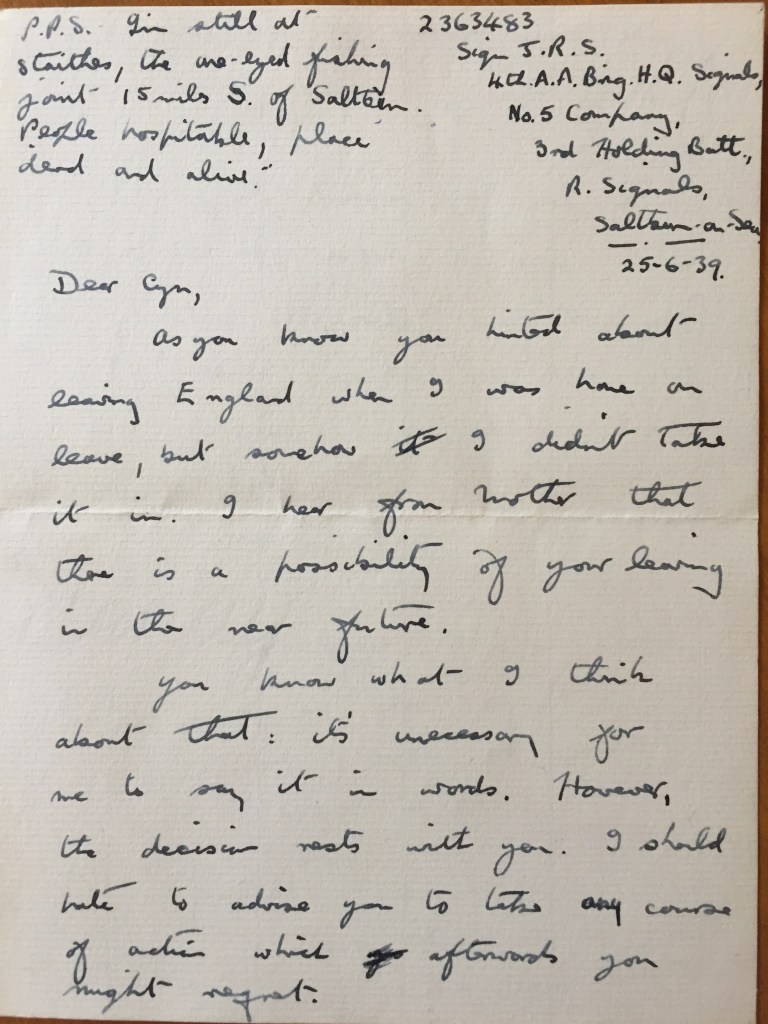 P.P.S. I'm still at
Staithes, the one-eyed fishing
joint 15 miles S. of Saltburn.
People hospitable, place
dead and alive."
2363483
Sign J.R.S.
4th. A.A. Brig. H.Q. Signals,
No. 5 Company,
3rd Holding Batt.,
R. Signals,
Saltburn-on-Sea
25-6-39.
Dear Cyn,
As you know you hinted about
leaving England when I was home on
leave, but somehow it I didn't take
it in. I hear from Mother that
there is a possibility of your leaving
in the near future.
You know what I think
about that: it's unecessary for
me to say it in words. However,
the decision rests with you. I should
hate to advise you to take any course
of action which afterwards you
might regret.